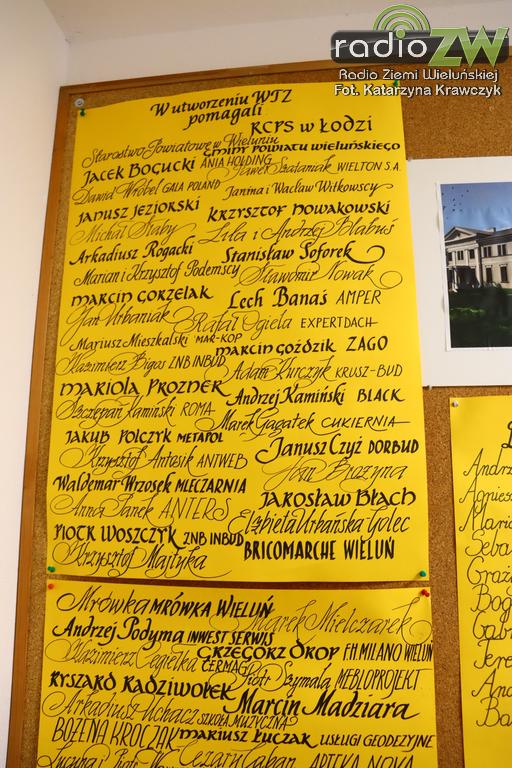 radioZW
Radio Ziemi Wieluńskiej
Fot. Katarzyna Krawczyk
W utworzeniu WTZ
pomagali
RCPS w ŁODZI
Starostwo Powiatowe w Wieluniu
GMINY POWIATU WIELUŃSKIEGO
JACEK BOGUCKI ANIA HOLDING
Paweł Szataniak WIELTON S.A.
Dawid Wróbel GALA POLAND
Janina i Wacław Witkowscy
JANUSZ JEZIORSKI
KRZYSZTOF NOWAKOWSKI
Michał Słaby
Lila i Andrzej Błabuś
Arkadiusz Rogacki
Stanisław Soforek
Marian i Krzysztof Podemscy
Sławomir Nowak
MARCIN GORZELAK
Lech Banaś AMPER
Jan Urbaniak
Rafał Ogiela EXPERTDACH
Mariusz Mieszkalski MAR-KOP
MARCIN GOŹDZIK ZAGO
Kazimierz Bigos ZNB INBUD
Adam Kurczyk KRUSZ-BUD
MARIOLA PROZNER
Andrzej Kamiński BLACK
Szczepan Kamiński ROMA
Marek Gagatek CUKIERNIA
JAKUB POLCZYK METAPOL
Janusz Czyż DORBUD
Krzysztof Antosik ANTWEB
Jan Buzyna
Waldemar Wrzosek MLECZARNIA
JAROSŁAW BŁACH
Anna Panek ANTERS
Elżbieta Urbańska Golec
PIOTR WOSZCZYK ZNB INBUD
BRICOMARCHE WIELUŃ
Krzysztof Majtyka
Mrówka MRÓWKA WIELUŃ
Marek Mielczarek
Andrzej Podyma INWEST SERWIS
GRZEGORZ OKOP F.H. MILANO WIELUŃ
Kazimierz Cegiełka CERMAG
Piotr Szymala MEBLOPROJEKT
RYSZARD RADZIWOŁEK
Marcin Madziara
Arkadiusz Uchacz SZKOŁA MUZYCZNA
BOŻENA KROCZAK
MARIUSZ ŁUCZAK USŁUGI GEODEZYJNE
Lucyna i Piotr
Cezary Caban APTEKA NOVA
Andrz
Agniesz
Maria
Seba
Graży
Bog
Gabr
Tere
And
Ba